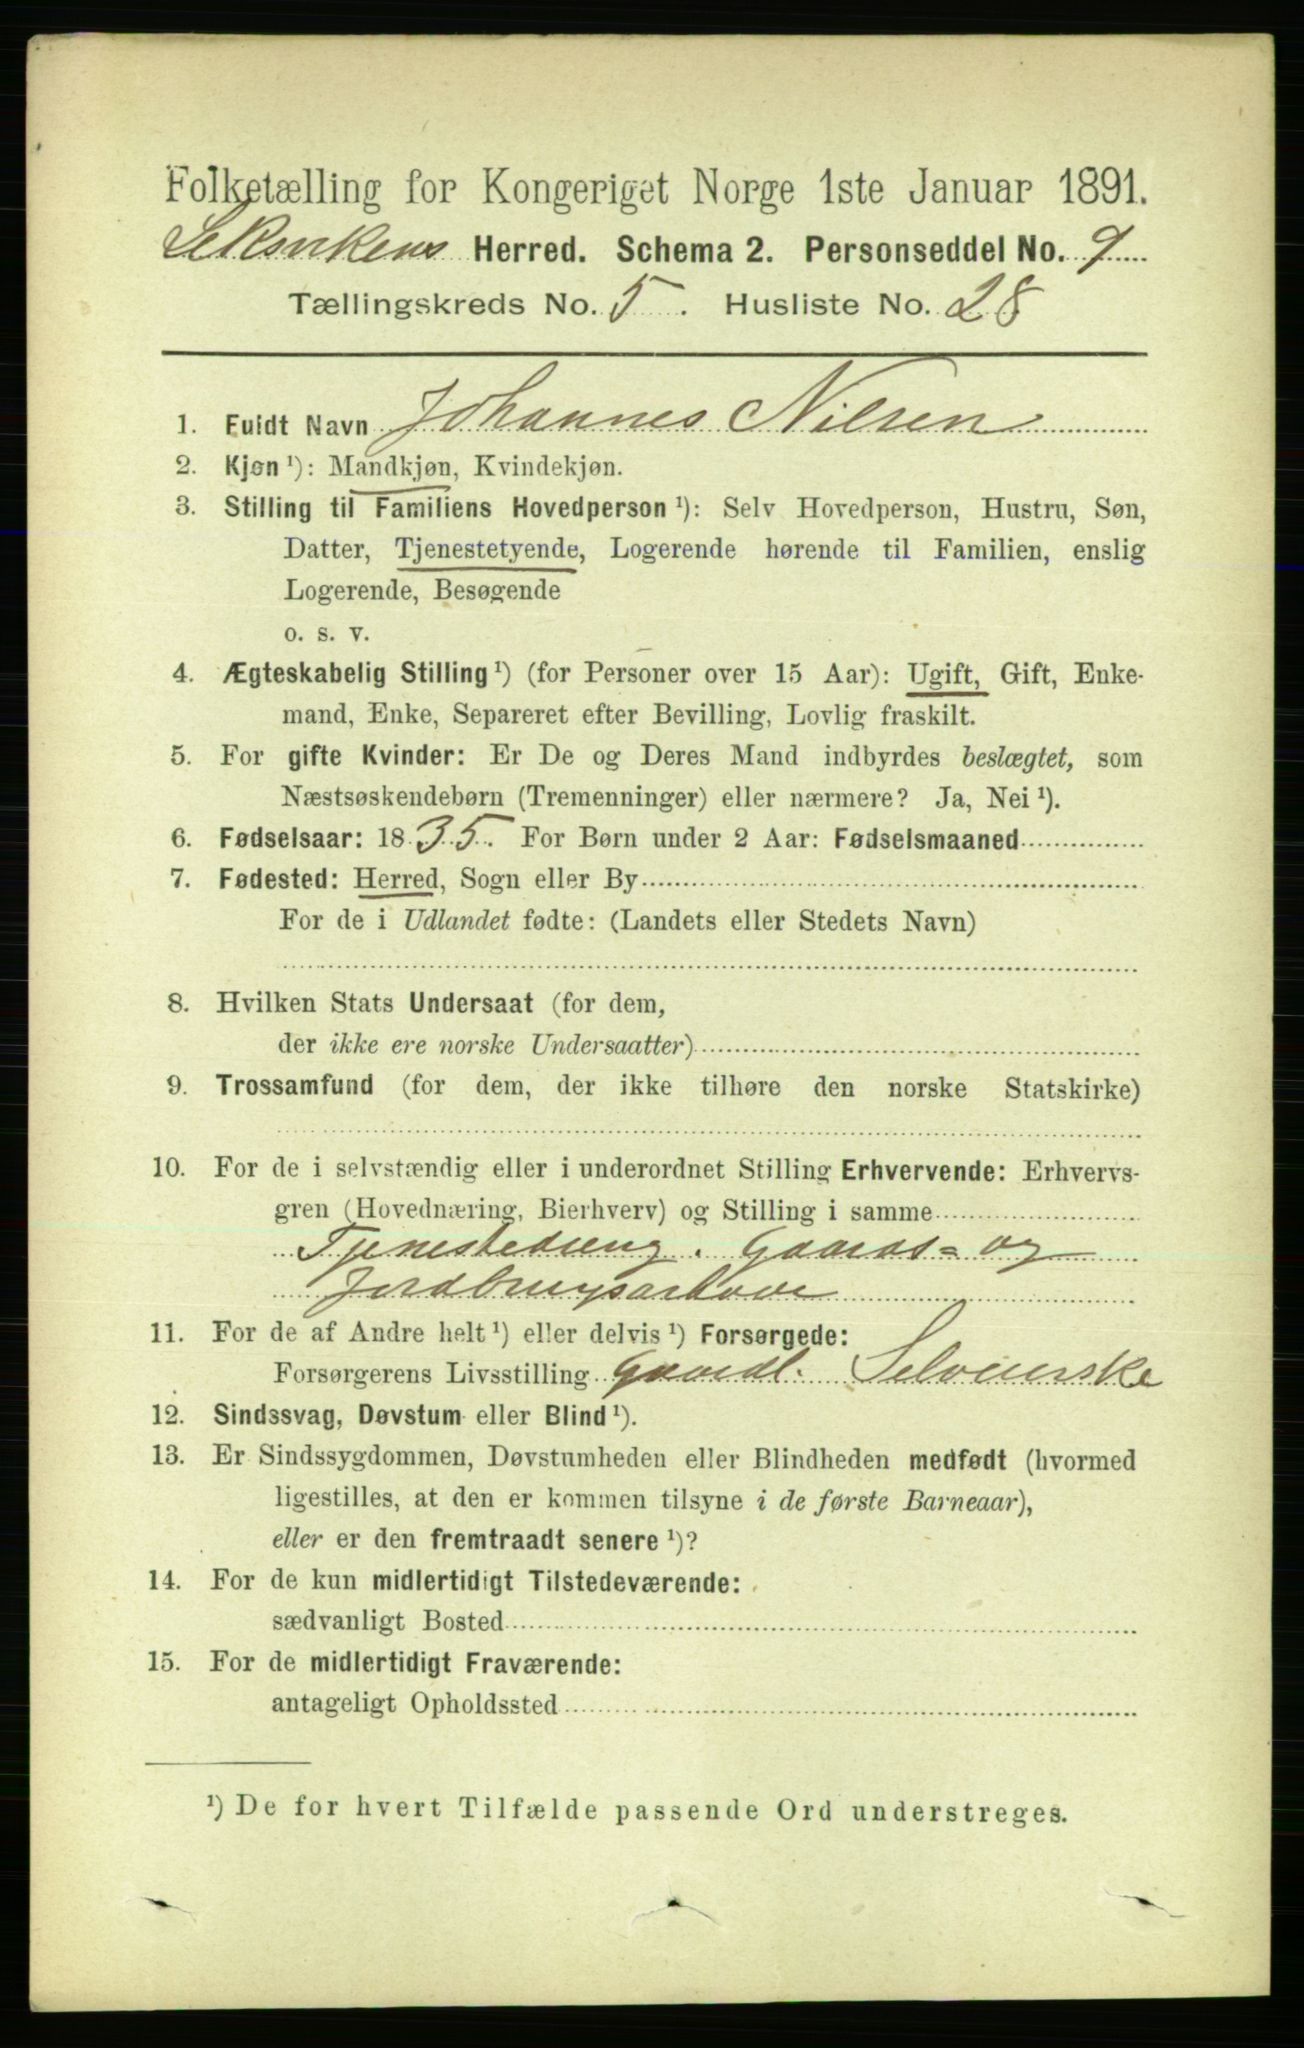 Folketælling for Kongeriget Norge 1ste Januar 1891.
Leksvikens Herred. Schema 2. Personseddel No. 9
Tællingskreds No. 5. Husliste No. 28
1. Fuldt Navn Johannes Nilsen
2. Kjøn ¹): Mandkjøn, Kvindekjøn.
3. Stilling til Familiens Hovedperson ¹): Selv Hovedperson, Hustru, Søn,
Datter, Tjenestetyende, Logerende hørende til Familien, enslig
Logerende, Besøgende
o. s. v.
4. Ægteskabelig Stilling ¹) (for Personer over 15 Aar): Ugift, Gift, Enke-
mand, Enke, Separeret efter Bevilling, Lovlig fraskilt.
5. For gifte Kvinder: Er De og Deres Mand indbyrdes beslægtet, som
Næstsøskendebørn (Tremenninger) eller nærmere? Ja, Nei ¹).
6. Fødselsaar: 1835. For Børn under 2 Aar: Fødselsmaaned
7. Fødested: Herred, Sogn eller By
For de i Udlandet fødte: (Landets eller Stedets Navn)
8. Hvilken Stats Undersaat (for dem,
der ikke ere norske Undersaatter)
9. Trossamfund (for dem, der ikke tilhøre den norske Statskirke)
10. For de i selvstændig eller i underordnet Stilling Erhvervende: Erhvervs-
gren (Hovednæring, Bierhverv) og Stilling i samme
Tjenestedreng. Gaards- og
Jordbrugsarbeide
11. For de af Andre helt ¹) eller delvis ¹) Forsørgede:
Forsørgerens Livsstilling Gaardb. Selveierske
12. Sindssvag, Døvstum eller Blind ¹).
13. Er Sindssygdommen, Døvstumheden eller Blindheden medfødt (hvormed
ligestilles, at den er kommen tilsyne i de første Barneaar),
eller er den fremtraadt senere ¹)?
14. For de kun midlertidigt Tilstedeværende:
sædvanligt Bosted
15. For de midlertidigt Fraværende:
antageligt Opholdssted
¹) De for hvert Tilfælde passende Ord understreges.